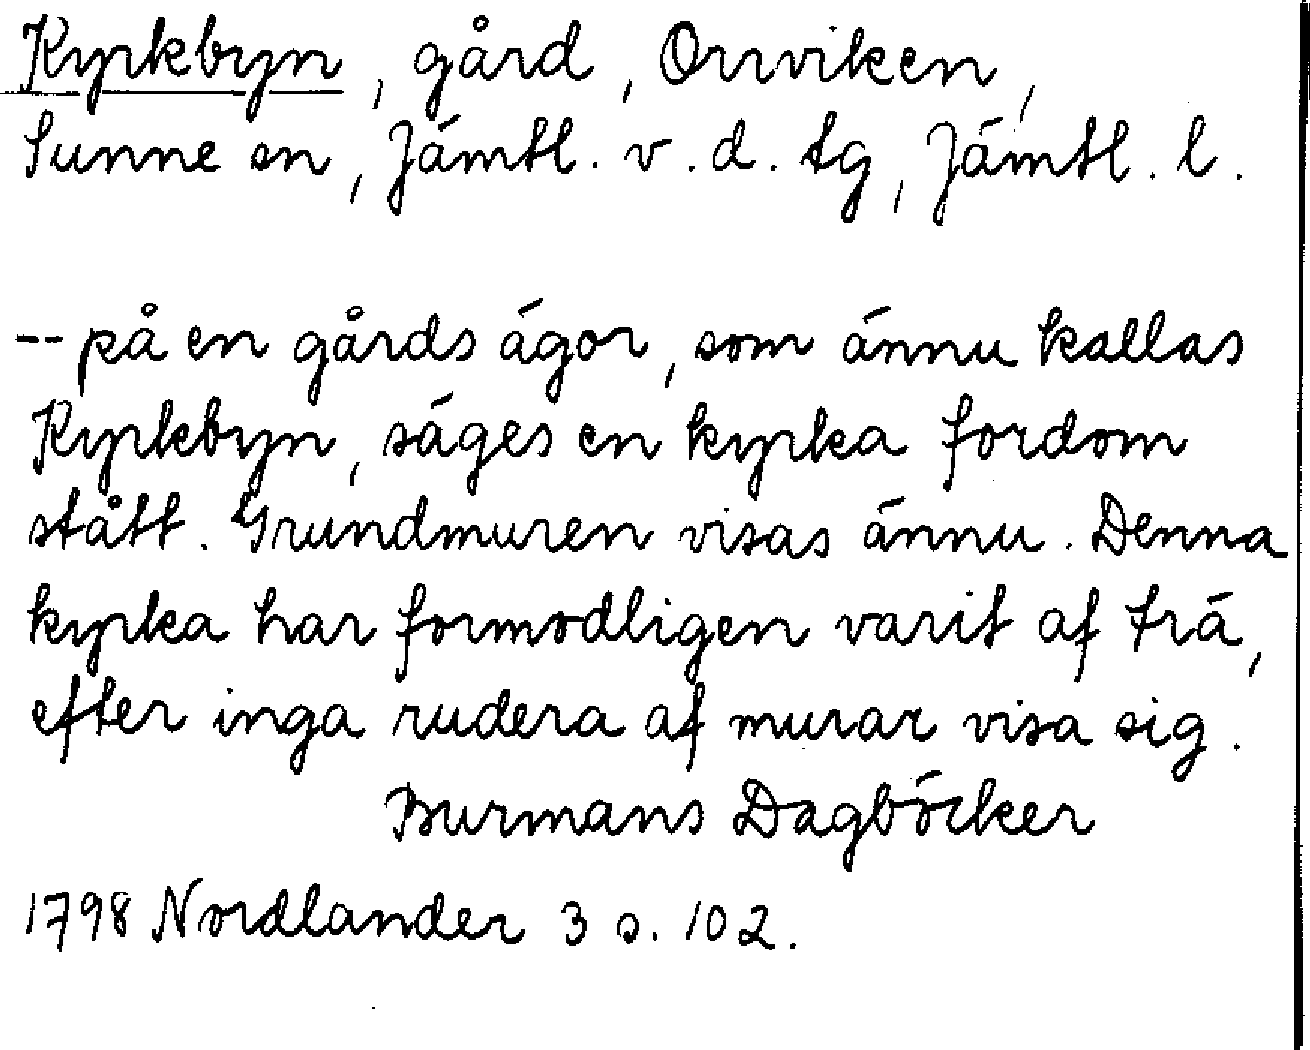 Kyrkbyn, gård, Orrviken,
Sunne sn, Jämtl. v. d. tg, Jämtl. l.
-- på en gårds ägor, som ännu kallas
Kyrkbyn, säges en kyrka fordom
stått. Grundmuren visas ännu. Denna
kyrka har formodligen varit af trä,
efter inga rudera af murar visa sig.
Burmans Dagböcker
1798 Nordlander 3 s. 102.